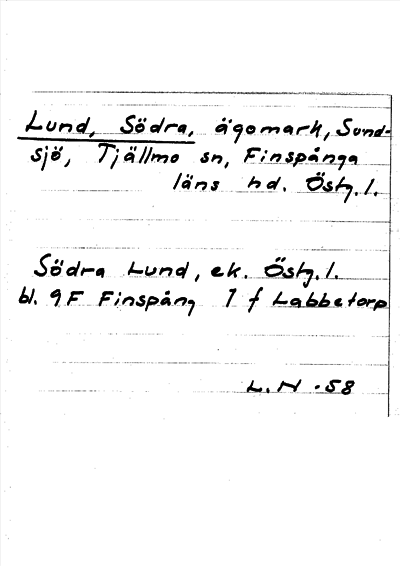 Lund, Södra, ägomark, Sund-
sjö, Tjällmo sn, Finspånga
läns hd. Östg. l.
Södra Lund, ek. Östg. l.
bl. 9F Finspång 7 f Labbetorp
L. N -58